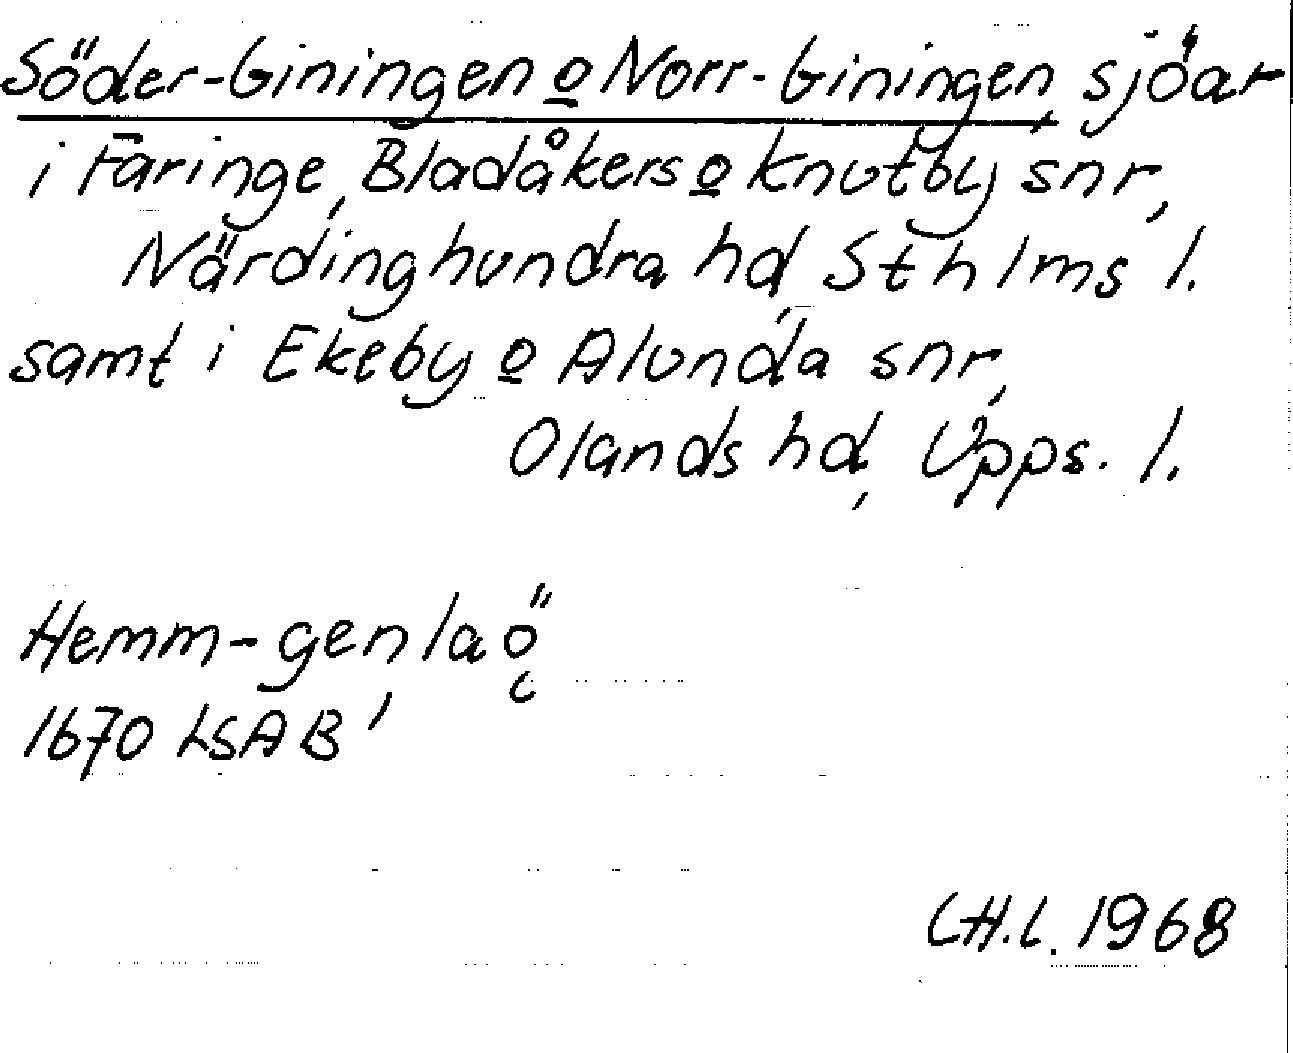 Söder-Giningen o Norr-Giningen, sjöar
i Faringe, Bladåkers o Knutby snr,
Närdinghundra hd, Sthlms l.
samt i Ekeby o Alunda snr,
Olands hd, Upps. l.
Hemm-gen la ö
1670 LSA B
CH.L. 1968